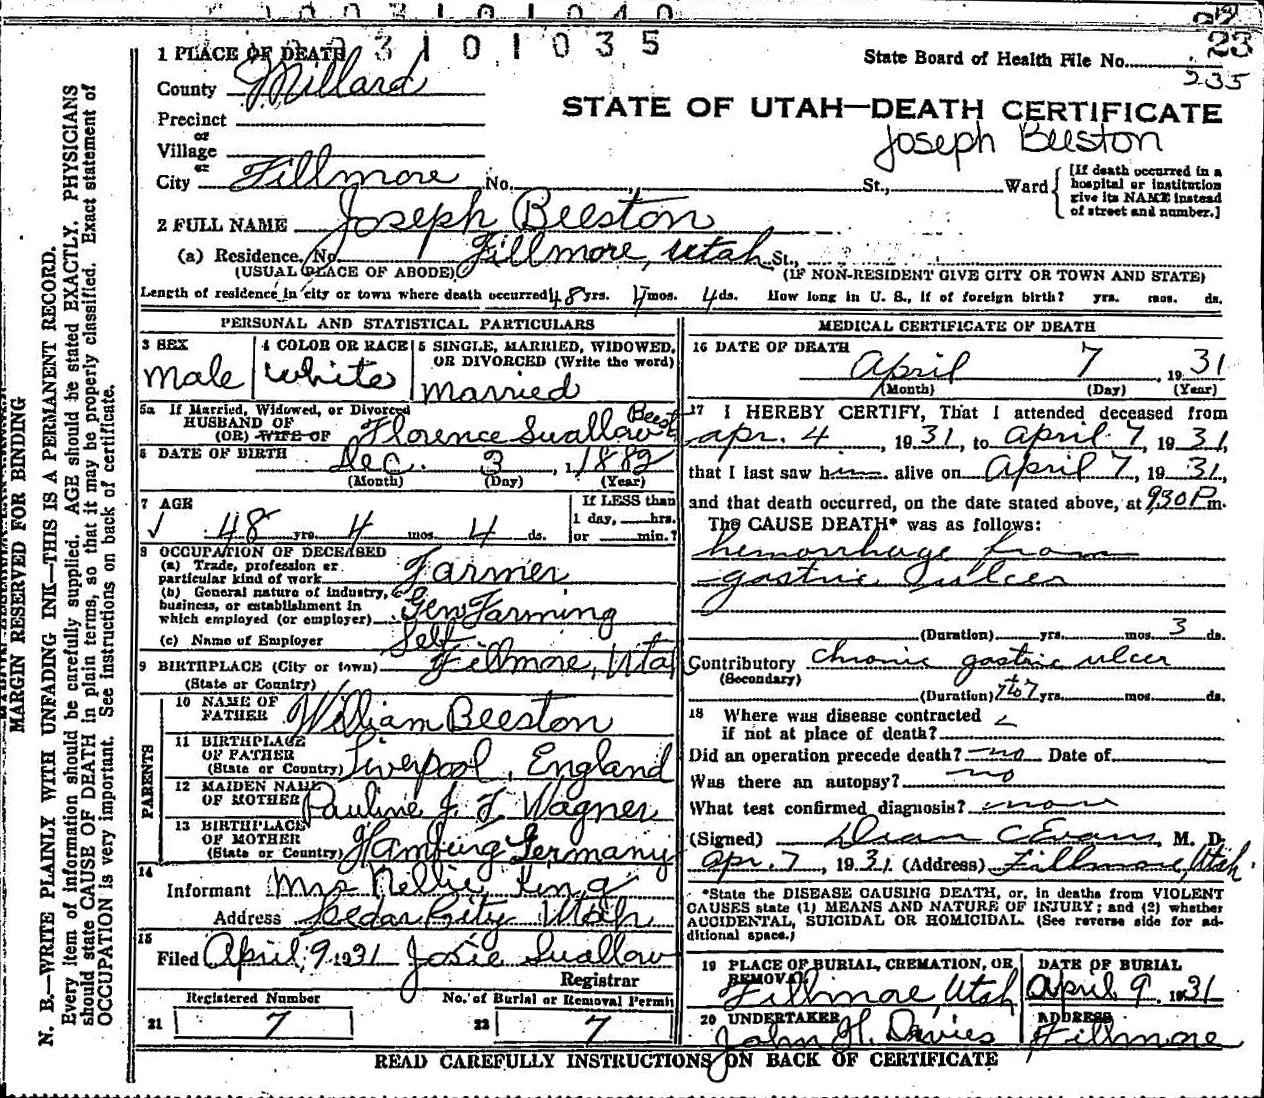 1003101040
03101035
23
235
State Board of Health File No.
1 PLACE OF DEATH
County Millard
STATE OF UTAH—DEATH CERTIFICATE
Joseph Beeston
Precinct
or
Village
or
City Fillmore No. St., Ward
[If death occurred in a hospital or institution give its NAME instead of street and number.]
2 FULL NAME Joseph Beeston
(a) Residence. No. Fillmore, Utah St.,
(USUAL PLACE OF ABODE) (IF NON-RESIDENT GIVE CITY OR TOWN AND STATE)
Length of residence in city or town where death occurred 48 yrs. 4 mos. 4 ds. How long in U. S., if of foreign birth? yrs. mos. ds.
PERSONAL AND STATISTICAL PARTICULARS
3 SEX Male
4 COLOR OR RACE White
5 SINGLE, MARRIED, WIDOWED, OR DIVORCED (Write the word) Married
5a If Married, Widowed, or Divorced
HUSBAND OF
(OR) WIFE OF Florence Swallow Beest
6 DATE OF BIRTH Dec. 3, 1 1882
(Month) (Day) (Year)
7 AGE
48 yrs. 4 mos. 4 ds.
If LESS than
1 day, hrs.
or min.?
8 OCCUPATION OF DECEASED
(a) Trade, profession or
particular kind of work Farmer
(b) General nature of industry,
business, or establishment in
which employed (or employer) Gen Farming
(c) Name of Employer Self
9 BIRTHPLACE (City or town) Fillmore, Utah
(State or Country)
PARENTS
10 NAME OF
FATHER William Beeston
11 BIRTHPLACE
OF FATHER
(State or Country) Liverpool, England
12 MAIDEN NAME
OF MOTHER Pauline J. F. Wagner
13 BIRTHPLACE
OF MOTHER
(State or Country) Hamburg Germany
14
Informant Mrs Nellie King
Address Cedar City Utah
15
Filed April 9 1931 Josie Swallow
Registrar
Registered Number
21 7
No. of Burial or Removal Permit
22 7
MEDICAL CERTIFICATE OF DEATH
16 DATE OF DEATH
April 7, 19 31
(Month) (Day) (Year)
17 I HEREBY CERTIFY, That I attended deceased from
apr. 4, 19 31, to April 7, 19 31,
that I last saw him alive on April 7, 19 31,
and that death occurred, on the date stated above, at 930 P m.
The CAUSE DEATH* was as follows:
hemorrhage from
gastric ulcer
(Duration) yrs. mos. 3 ds.
Contributory chronic gastric ulcer
(Secondary)
(Duration) yrs. mos. ds.
18 Where was disease contracted
if not at place of death?
Did an operation precede death? no Date of
Was there an autopsy? no
What test confirmed diagnosis? none
(Signed) Dean C Evans, M. D.
apr. 7, 1931 (Address) Fillmore, Utah.
*State the DISEASE CAUSING DEATH, or, in deaths from VIOLENT
CAUSES state (1) MEANS AND NATURE OF INJURY; and (2) whether
ACCIDENTAL, SUICIDAL OR HOMICIDAL. (See reverse side for ad-
ditional space.)
19 PLACE OF BURIAL, CREMATION, OR
REMOVAL
Fillmore, Utah
DATE OF BURIAL
April 9, 1931
20 UNDERTAKER
John H. Davies
ADDRESS
Fillmore
READ CAREFULLY INSTRUCTIONS ON BACK OF CERTIFICATE
MARGIN RESERVED FOR BINDING
N. B.—WRITE PLAINLY WITH UNFADING INK—THIS IS A PERMANENT RECORD.
Every item of information should be carefully supplied. AGE should be stated EXACTLY. PHYSICIANS
should state CAUSE OF DEATH in plain terms, so that it may be properly classified. Exact statement of
OCCUPATION is very important. See instructions on back of certificate.